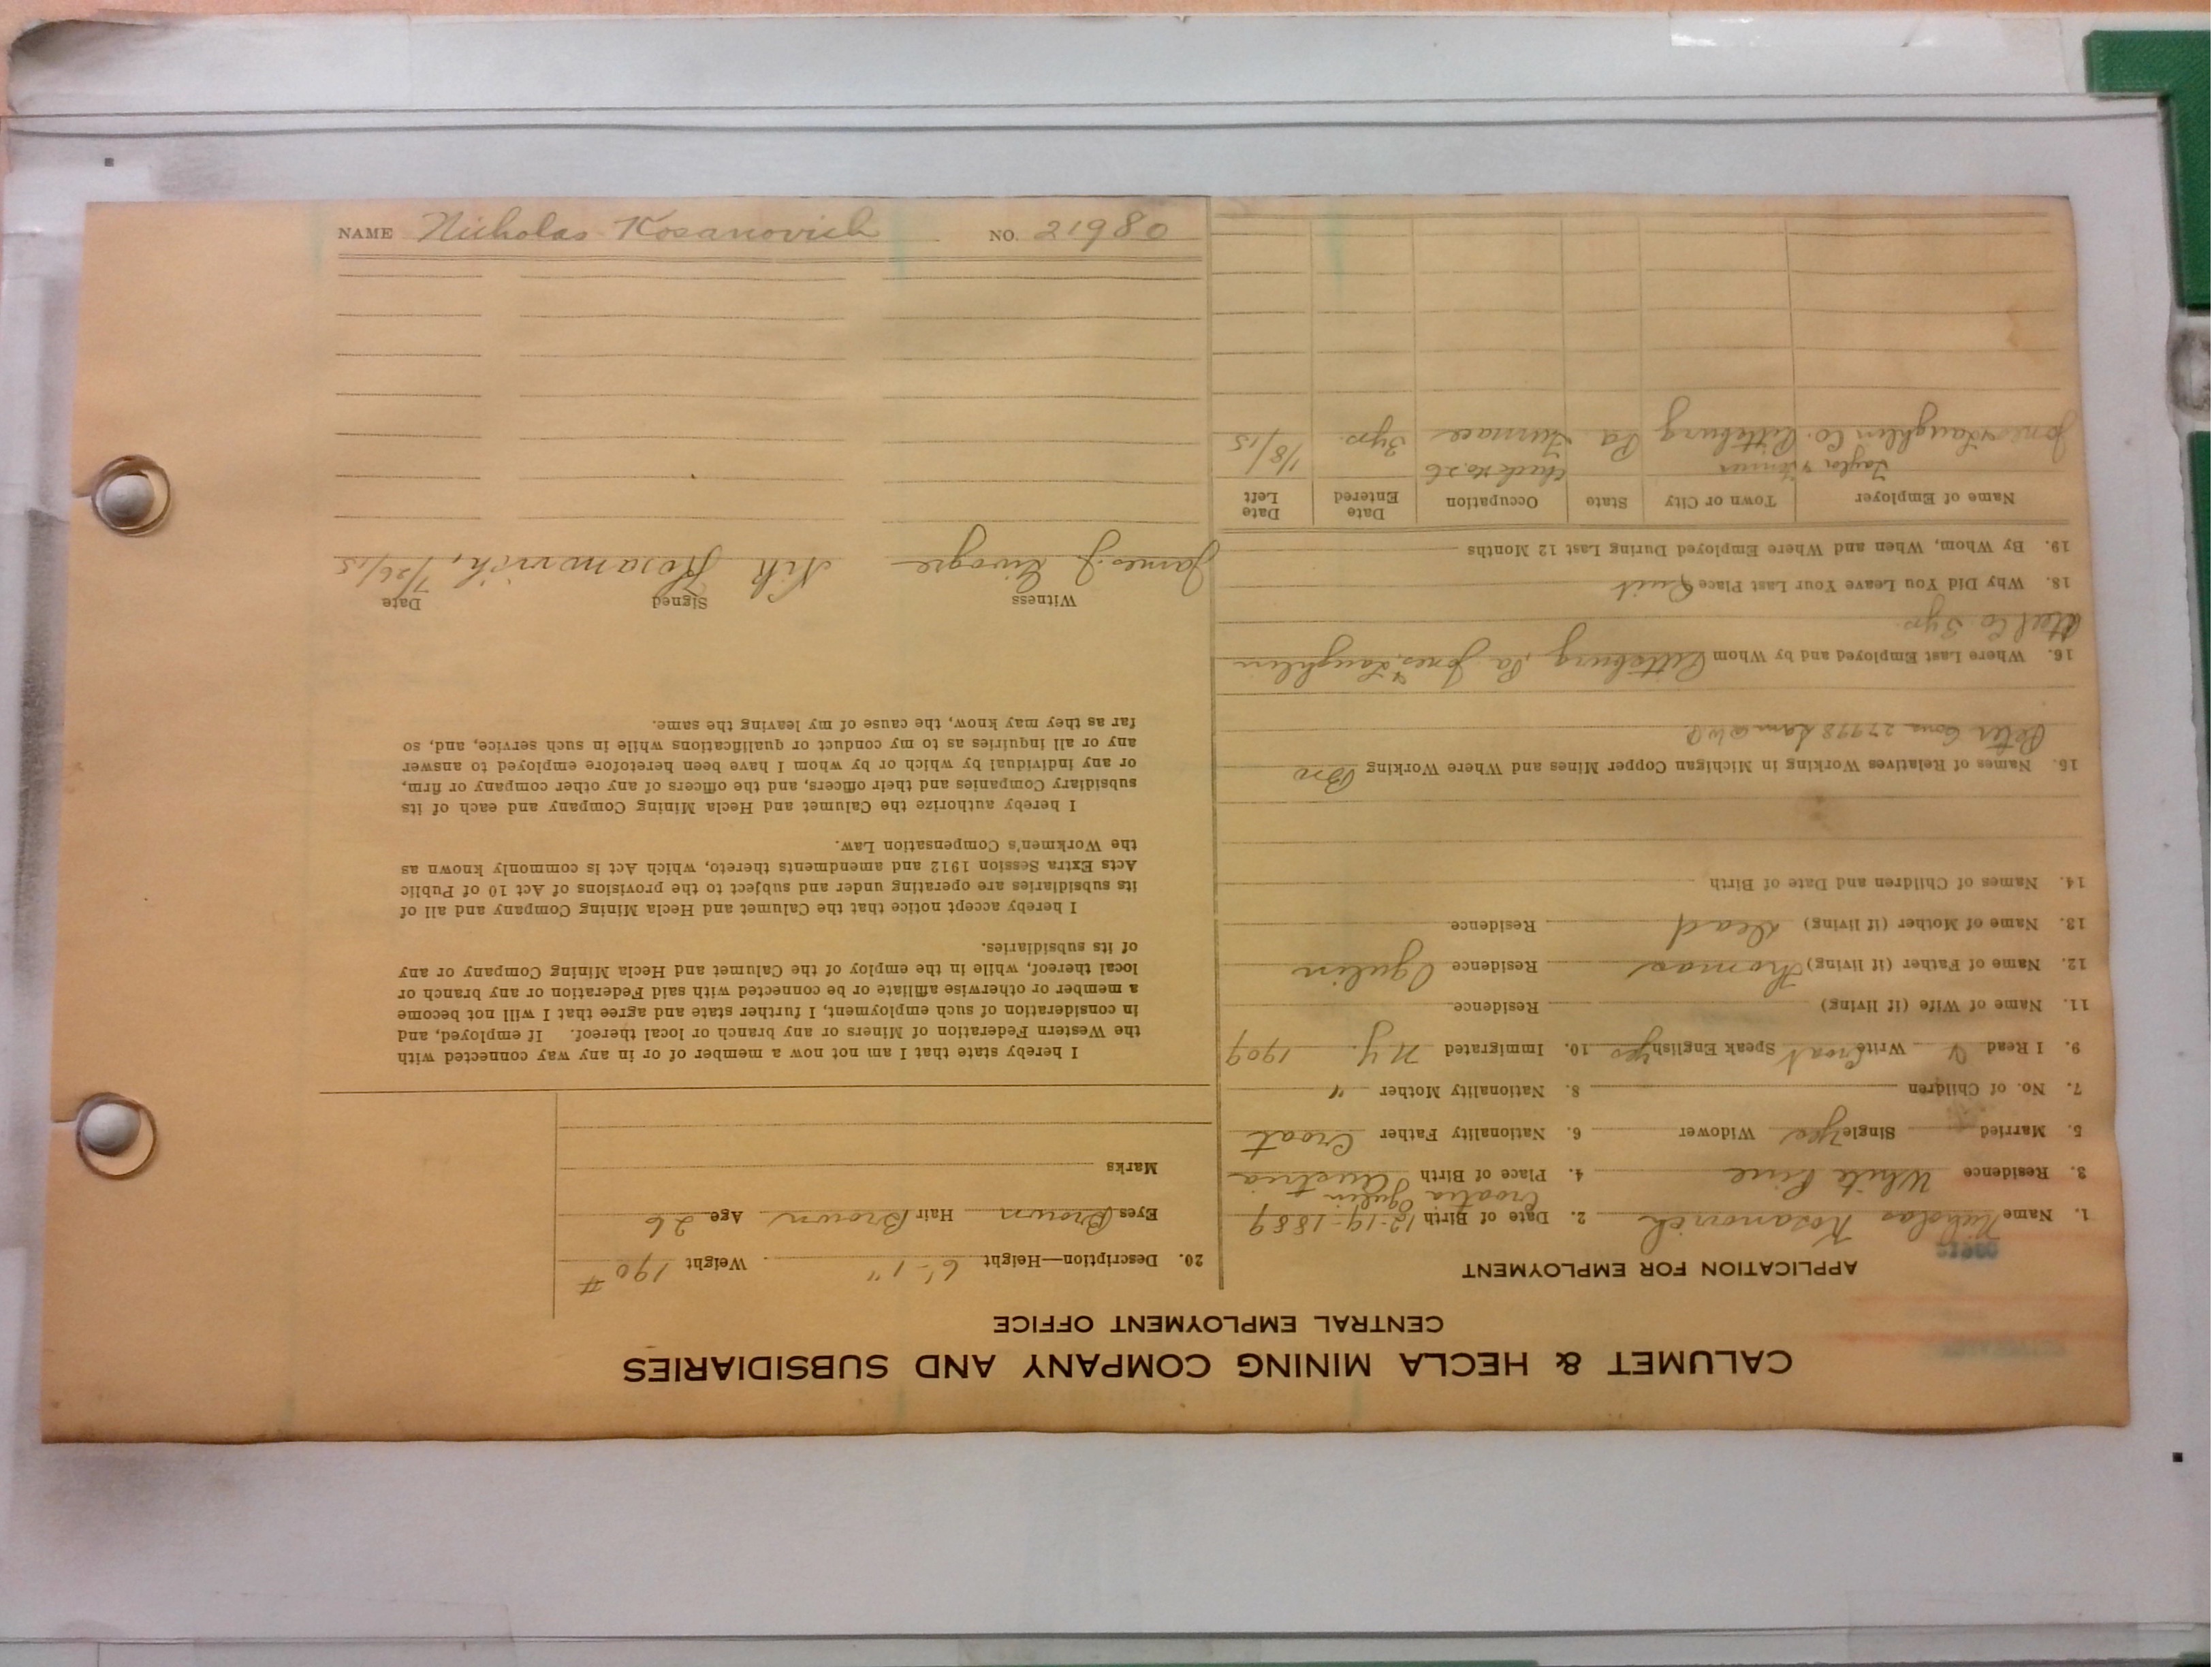 CALUMET & HECLA MINING COMPANY AND SUBSIDIARIES
CENTRAL EMPLOYMENT OFFICE
APPLICATION FOR EMPLOYMENT
1. Name Nicholas Kosanovich 2. Date of Birth 12-19-1889
Croatia Ogulin
3. Residence White Pine 4. Place of Birth Austria
5. Married Single yes Widower 6. Nationality Father Croat
7. No. of Children 8. Nationality Mother "
9. I Read Write Croat Speak English yes 10. Immigrated N.Y. 1909
11. Name of Wife (if living) Residence
12. Name of Father (if living) Thomas Residence Ogulin
13. Name of Mother (if living) Dead Residence
14. Names of Children and Date of Birth
15. Names of Relatives Working in Michigan Copper Mines and Where Working Bro
Peter
16. Where Last Employed and by Whom Pittsburg, Pa. Jones & Laughlin
Steel Co 3 yrs.
18. Why Did You Leave Your Last Place Quit
19. By Whom, When and Where Employed During Last 12 Months
Name of Employer Town or City State Occupation Date Entered Date Left
Taylor Check No. 26
Jones & Laughlin Co. Pittsburg Pa Furnace 3 yrs. 1/8/15
20. Description—Height 6'-1" Weight 190 #
Eyes Brown Hair Brown Age 26
Marks
I hereby state that I am not now a member of or in any way connected with
the Western Federation of Miners or any branch or local thereof. If employed, and
in consideration of such employment, I further state and agree that I will not become
a member or otherwise affiliate or be connected with said Federation or any branch or
local thereof, while in the employ of the Calumet and Hecla Mining Company or any
of its subsidiaries.
I hereby accept notice that the Calumet and Hecla Mining Company and all of
its subsidiaries are operating under and subject to the provisions of Act 10 of Public
Acts Extra Session 1912 and amendments thereto, which Act is commonly known as
the Workmen's Compensation Law.
I hereby authorize the Calumet and Hecla Mining Company and each of its
subsidiary Companies and their officers, and the officers of any other company or firm,
or any individual by which or by whom I have been heretofore employed to answer
any or all inquiries as to my conduct or qualifications while in such service, and, so
far as they may know, the cause of my leaving the same.
Witness Signed Date
James J. Nik Kosanovich, 7/26/15
NAME Nicholas Kosanovich NO. 21980